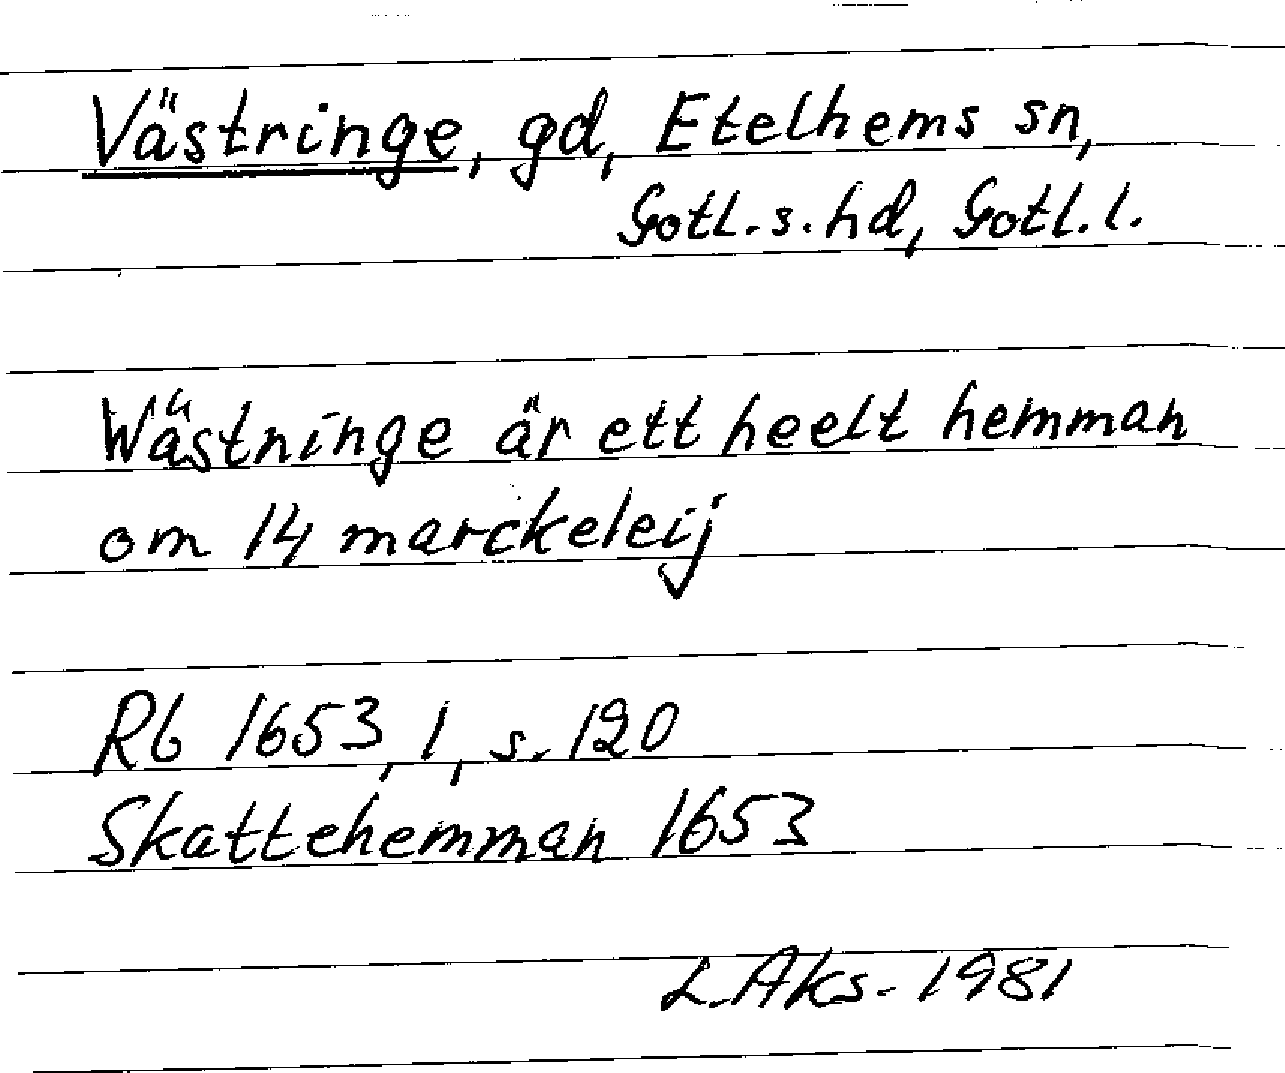 Västringe, gd, Etelhems sn,
Gotl. s. hd, Gotl. l.
Wästninge är ett heelt hemman
om 14 marckeleij
Rb 1653, 1, s. 120
Skattehemman 1653
L. Aks. 1981